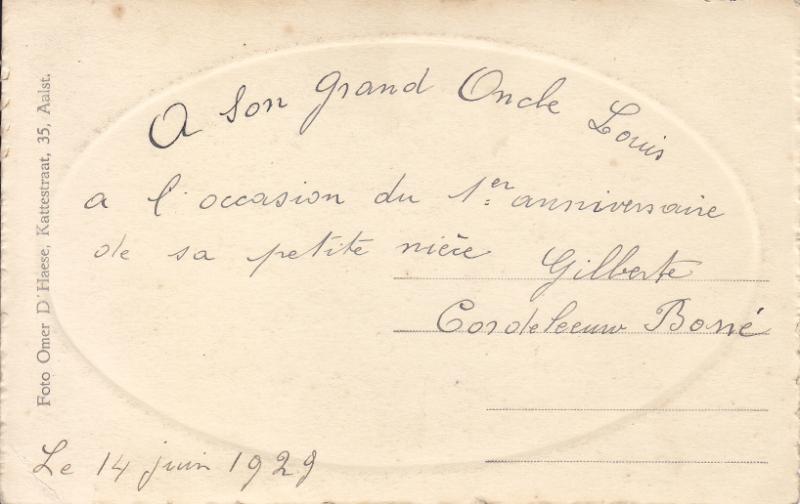 A son grand Oncle Louis
a l'occasion du 1er anniversaire
de sa petite nièce Gilberte
Cordeleeuw Bosné
Le 14 juin 1929
Foto Omer D'Haese, Kattestraat, 35, Aalst.